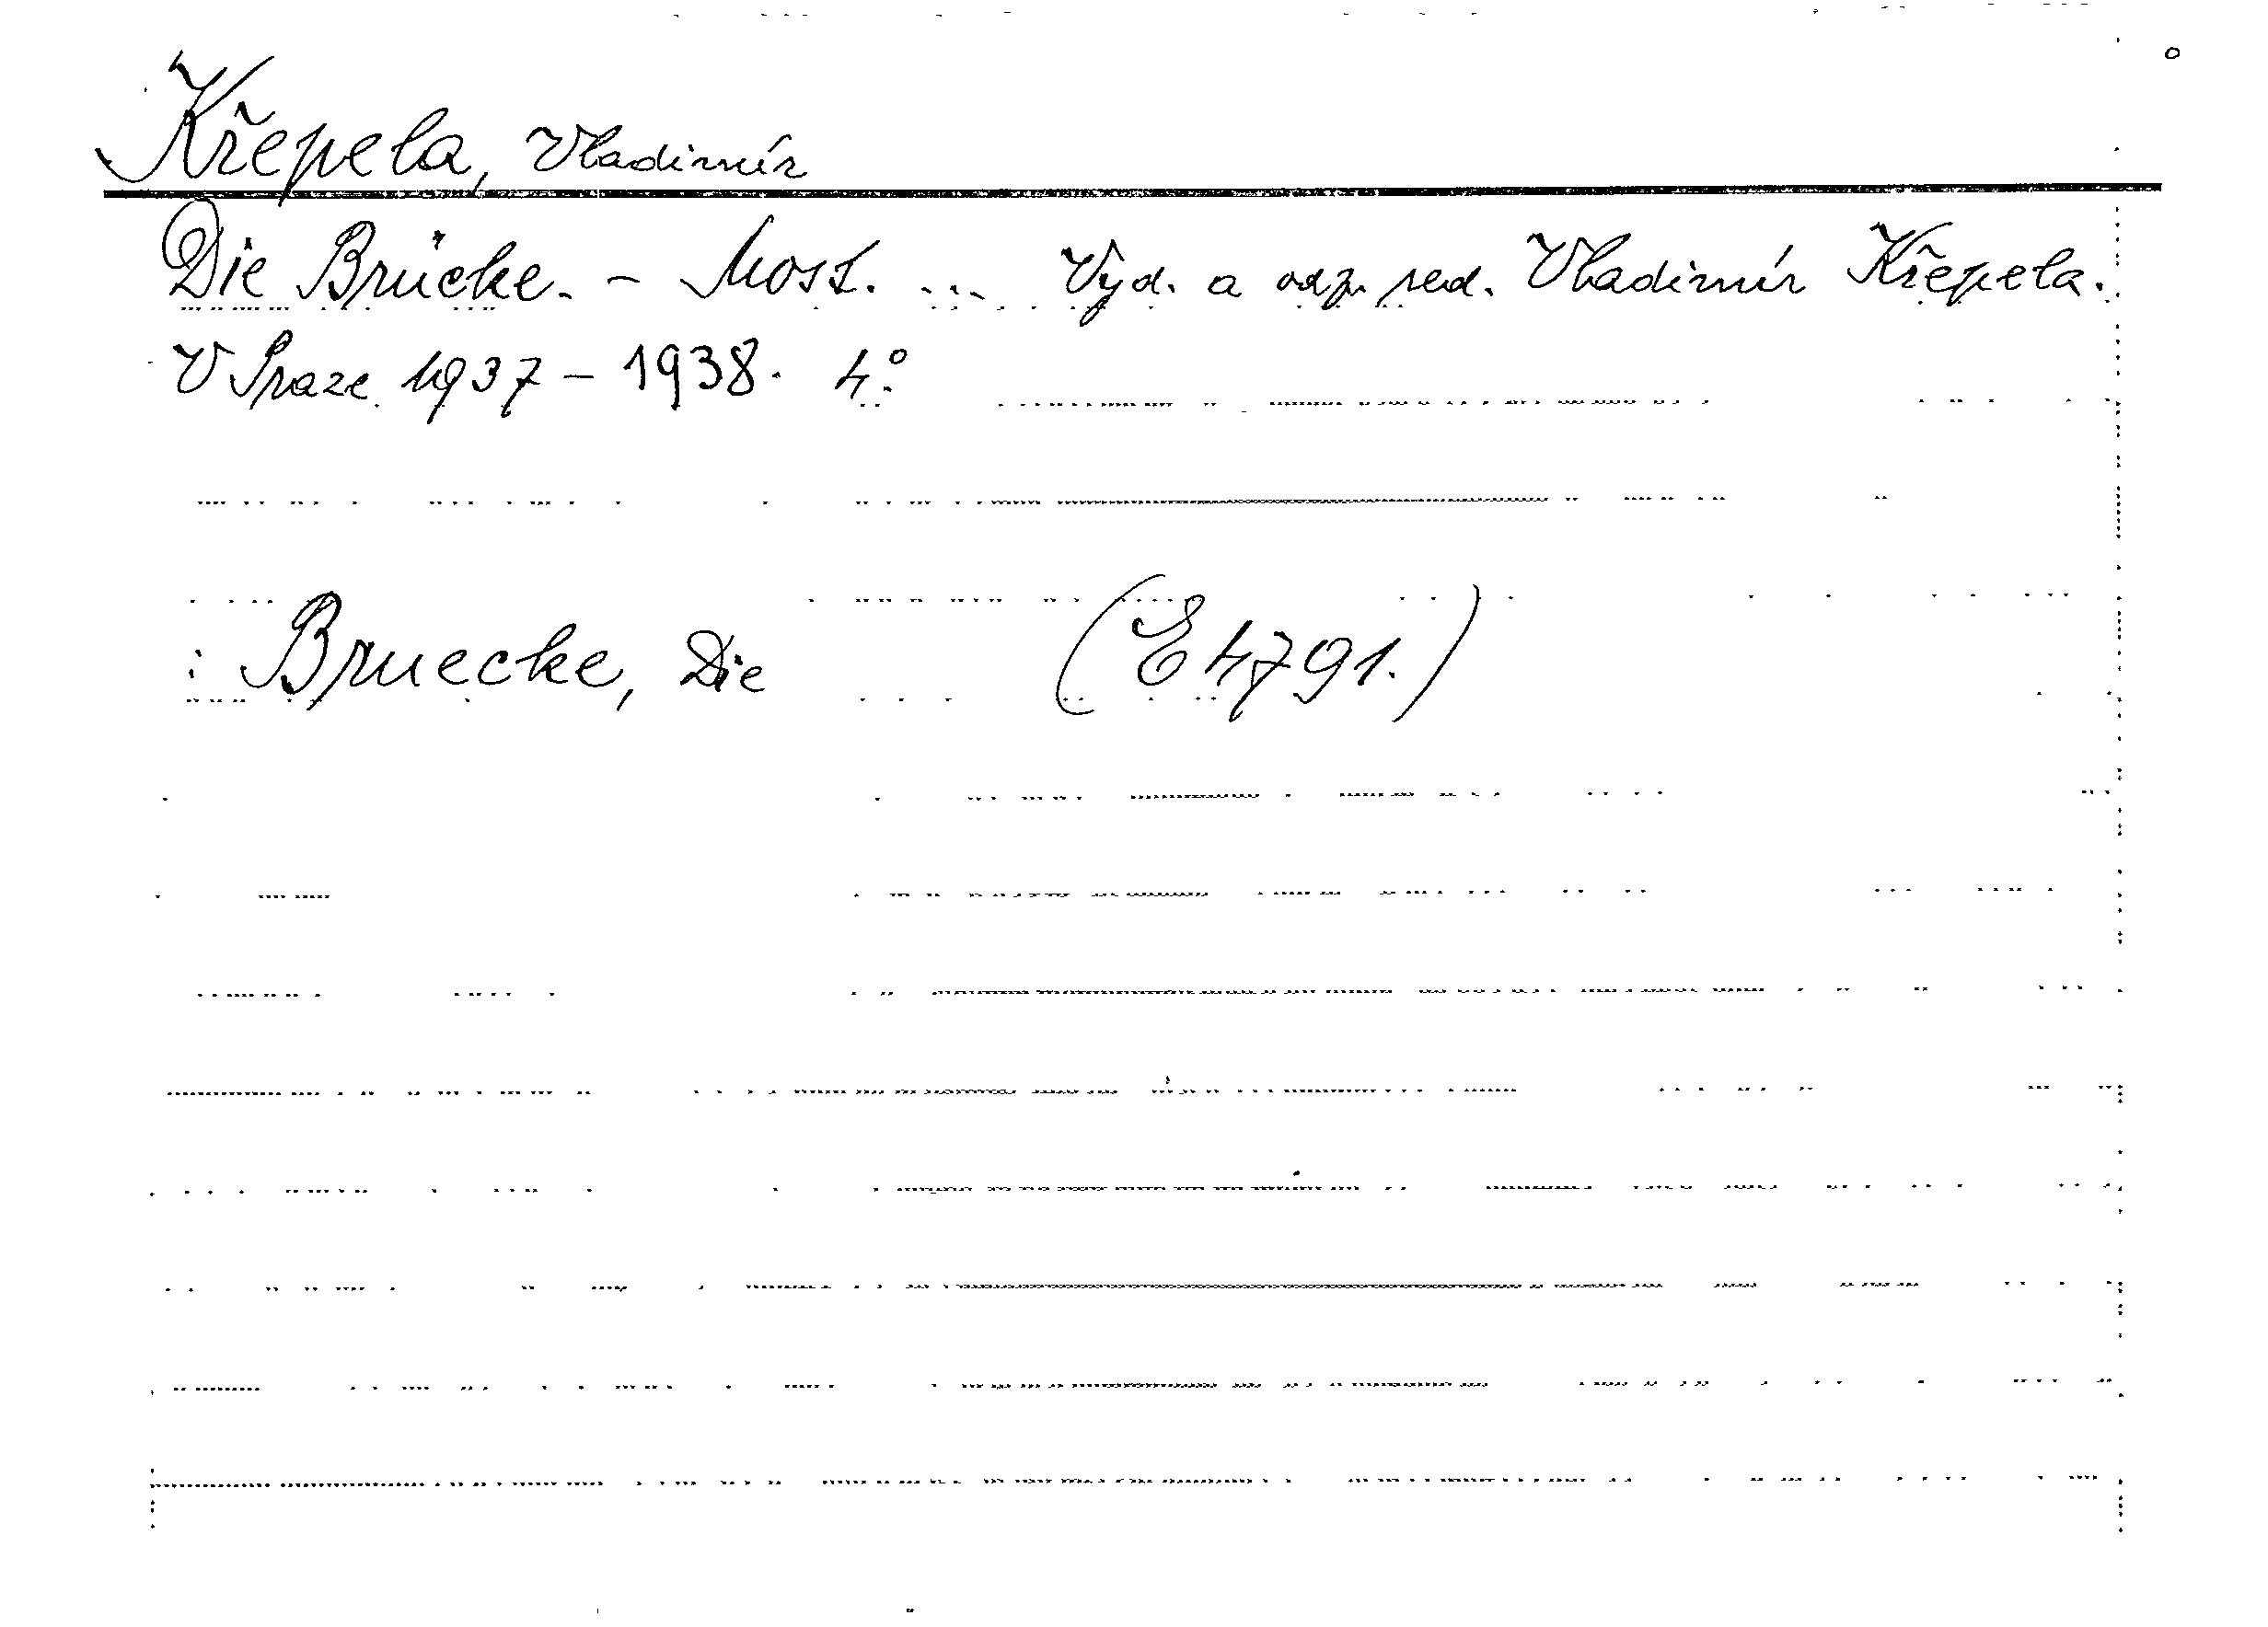 Křepela, Vladimír
Die Brücke. - Most. ... Vyd. a odp. red. Vladimír Křepela.
V Praze 1937 - 1938. 4°.
: Bruecke, Die (E 4791.)